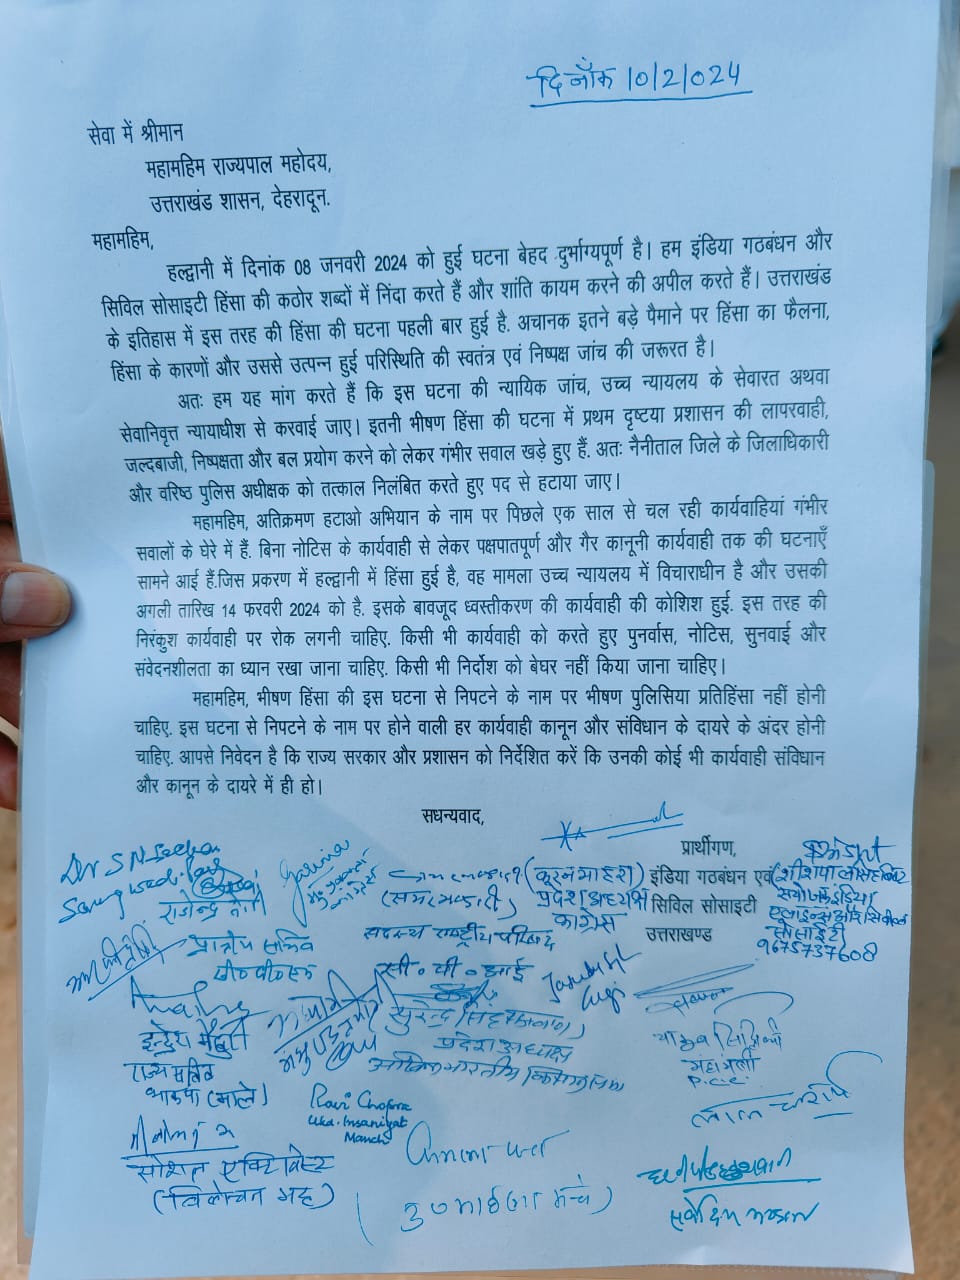 दिनाँक 10/2/024
सेवा में श्रीमान
महामहिम राज्यपाल महोदय,
उत्तराखंड शासन, देहरादून.
महामहिम,
हल्द्वानी में दिनांक 08 जनवरी 2024 को हुई घटना बेहद दुर्भाग्यपूर्ण है। हम इंडिया गठबंधन और
सिविल सोसाइटी हिंसा की कठोर शब्दों में निंदा करते हैं और शांति कायम करने की अपील करते हैं। उत्तराखंड
के इतिहास में इस तरह की हिंसा की घटना पहली बार हुई है. अचानक इतने बड़े पैमाने पर हिंसा का फैलना,
हिंसा के कारणों और उससे उत्पन्न हुई परिस्थिति की स्वतंत्र एवं निष्पक्ष जांच की जरूरत है।
अतः हम यह मांग करते हैं कि इस घटना की न्यायिक जांच, उच्च न्यायलय के सेवारत अथवा
सेवानिवृत्त न्यायाधीश से करवाई जाए। इतनी भीषण हिंसा की घटना में प्रथम दृष्टया प्रशासन की लापरवाही,
जल्दबाजी, निष्पक्षता और बल प्रयोग करने को लेकर गंभीर सवाल खड़े हुए हैं. अतः नैनीताल जिले के जिलाधिकारी
और वरिष्ठ पुलिस अधीक्षक को तत्काल निलंबित करते हुए पद से हटाया जाए।
महामहिम, अतिक्रमण हटाओ अभियान के नाम पर पिछले एक साल से चल रही कार्यवाहियां गंभीर
सवालों के घेरे में हैं. बिना नोटिस के कार्यवाही से लेकर पक्षपातपूर्ण और गैर कानूनी कार्यवाही तक की घटनाएँ
सामने आई हैं.जिस प्रकरण में हल्द्वानी में हिंसा हुई है, वह मामला उच्च न्यायलय में विचाराधीन है और उसकी
अगली तारिख 14 फरवरी 2024 को है. इसके बावजूद ध्वस्तीकरण की कार्यवाही की कोशिश हुई. इस तरह की
निरंकुश कार्यवाही पर रोक लगनी चाहिए. किसी भी कार्यवाही को करते हुए पुनर्वास, नोटिस, सुनवाई और
संवेदनशीलता का ध्यान रखा जाना चाहिए. किसी भी निर्दोश को बेघर नहीं किया जाना चाहिए।
महामहिम, भीषण हिंसा की इस घटना से निपटने के नाम पर भीषण पुलिसिया प्रतिहिंसा नहीं होनी
चाहिए. इस घटना से निपटने के नाम पर होने वाली हर कार्यवाही कानून और संविधान के दायरे के अंदर होनी
चाहिए. आपसे निवेदन है कि राज्य सरकार और प्रशासन को निर्देशित करें कि उनकी कोई भी कार्यवाही संविधान
और कानून के दायरे में ही हो।
सधन्यवाद,
प्रार्थीगण,
इंडिया गठबंधन एवं
सिविल सोसाइटी
उत्तराखण्ड
Dr S N Sachan
राजेन्द्र नेगी
प्रदेश अध्यक्ष
कांग्रेस
सदस्य राष्ट्रीय परिषद
सी॰पी॰आई
एलाइन्स और सिविल
सोसाइटी
9675737608
सुरेन्द्र सिंह सजवाण
प्रदेश अध्यक्ष
अखिल भारतीय किसान सभा
इन्द्रेश मैखुरी
राज्य सचिव
भाकपा (माले)
याकूब सिद्दिकी
महामंत्री
P.C.C.
Ravi Chopra
Ukd. Insaniyat
Manch
सोशल एक्टिविस्ट
कमला पन्त
सर्वोदय मण्डल